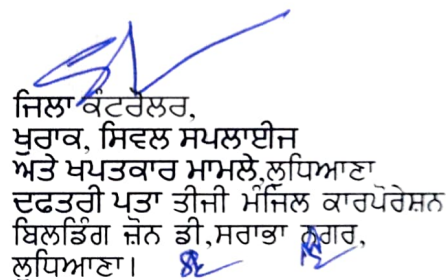 ਜਿਲਾ ਕੰਟਰੋਲਰ,
ਖੁਰਾਕ, ਸਿਵਲ ਸਪਲਾਈਜ
ਅਤੇ ਖਪਤਕਾਰ ਮਾਮਲੇ,ਲੁਧਿਆਣਾ
ਦਫਤਰੀ ਪਤਾ ਤੀਜੀ ਮੰਜਿਲ ਕਾਰਪੋਰੇਸ਼ਨ
ਬਿਲਡਿੰਗ ਜ਼ੋਨ ਡੀ,ਸਰਾਭਾ ਨਗਰ,
ਲੁਧਿਆਣਾ।